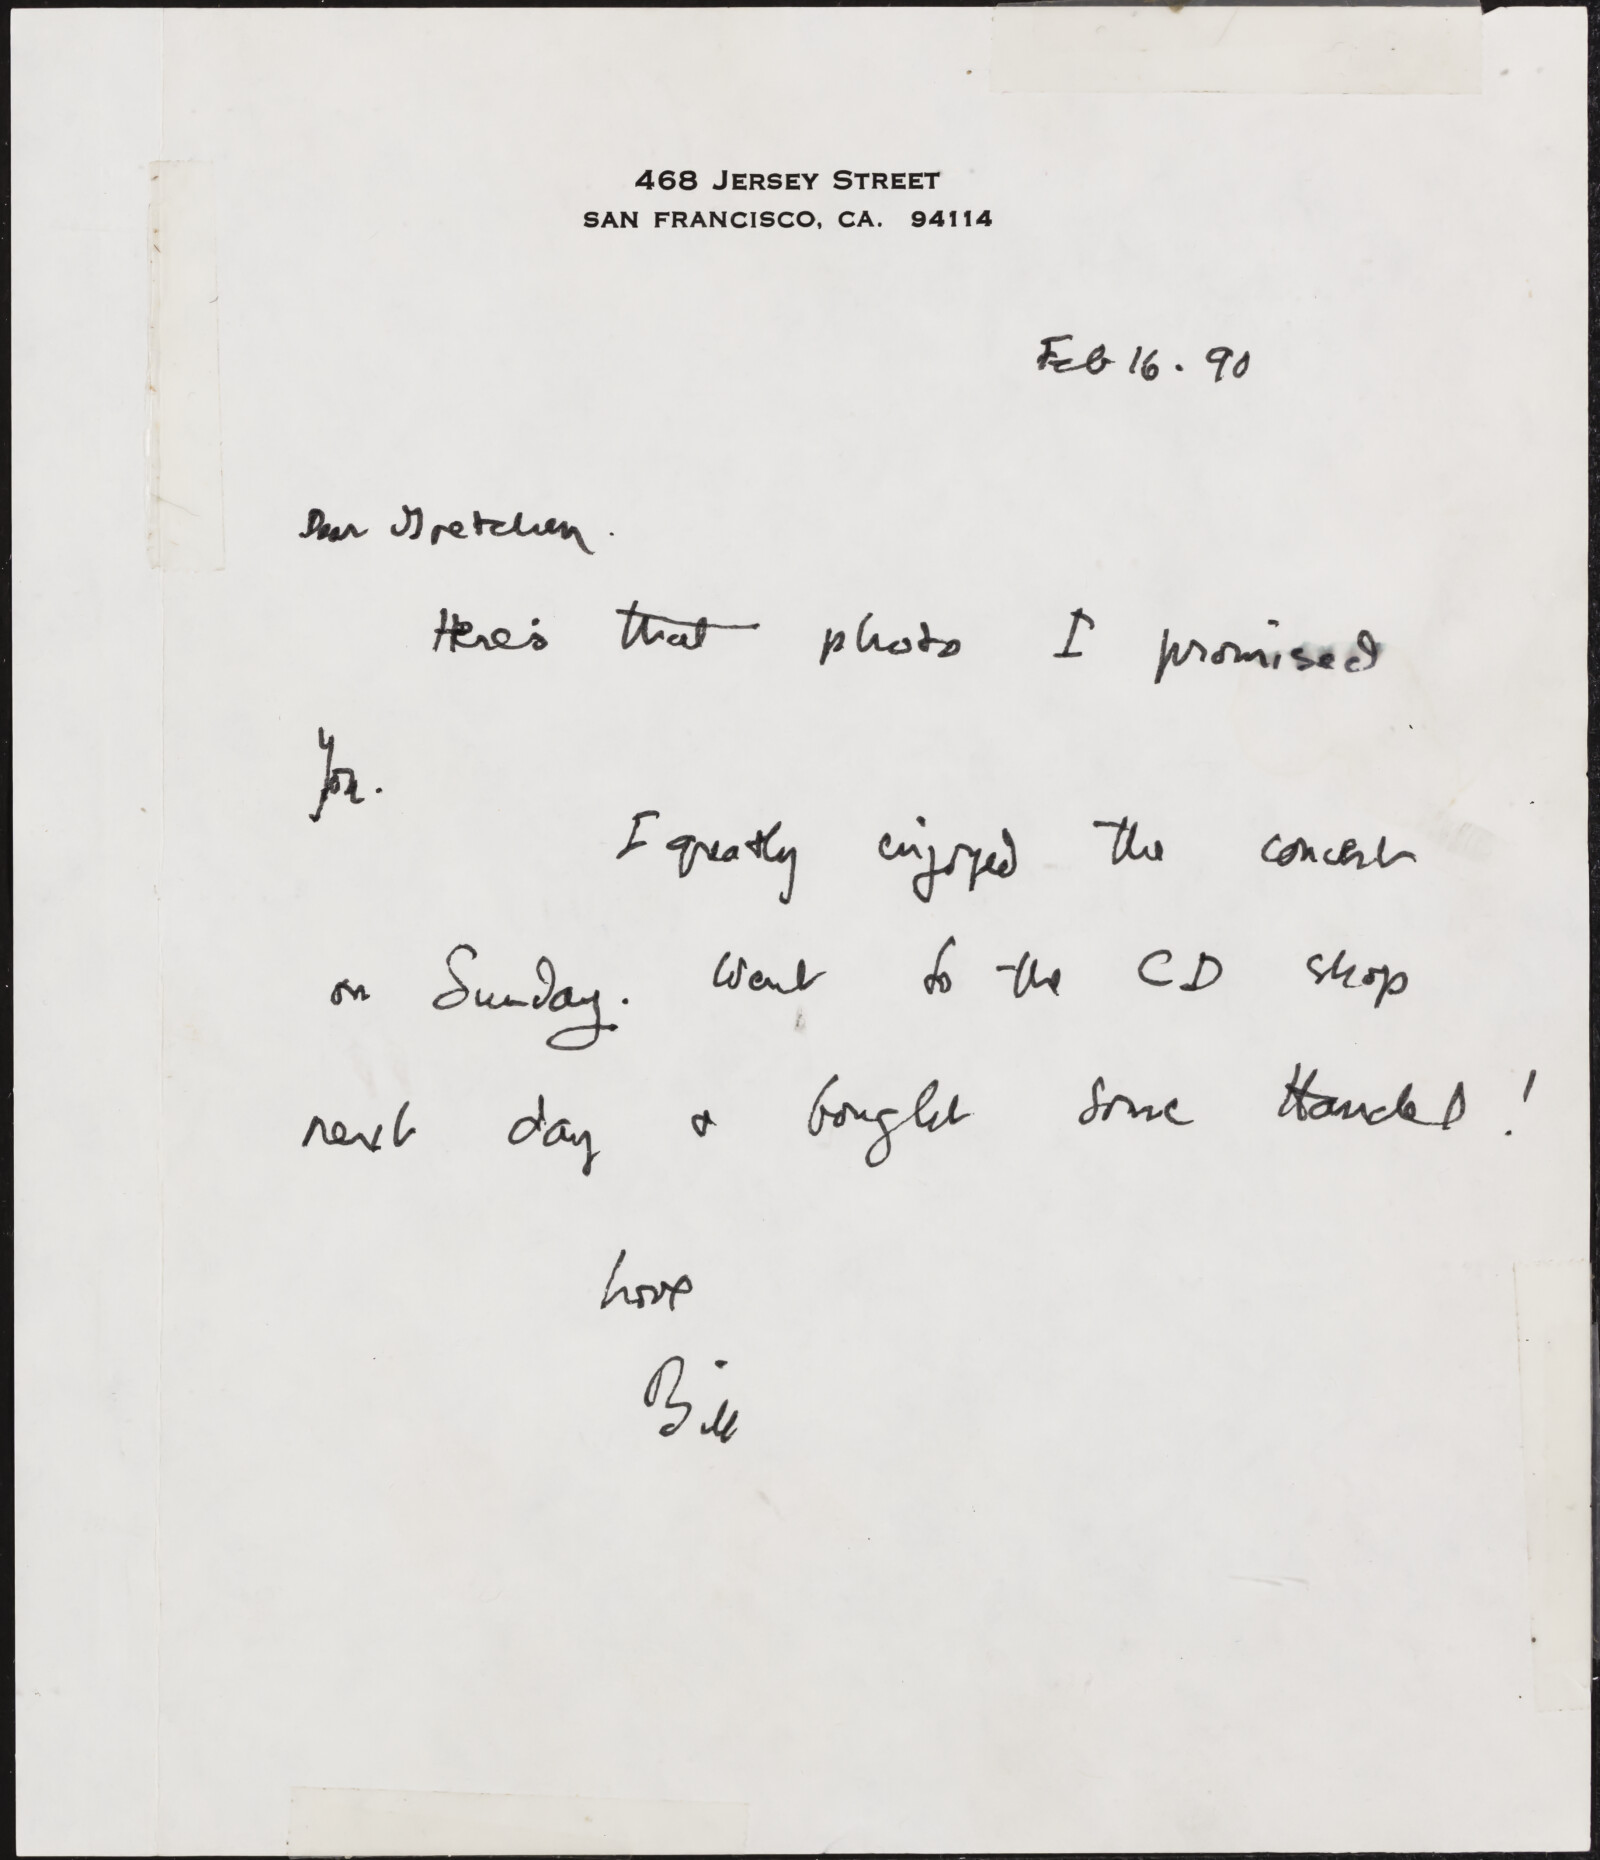 468 JERSEY STREET
SAN FRANCISCO, CA. 94114
Feb 16. 90
Dear Gretchen.
Here's that photo I promised
you.
I greatly enjoyed the concert
on Sunday. Went to the CD shop
next day & bought some Handel!
Love
Bill